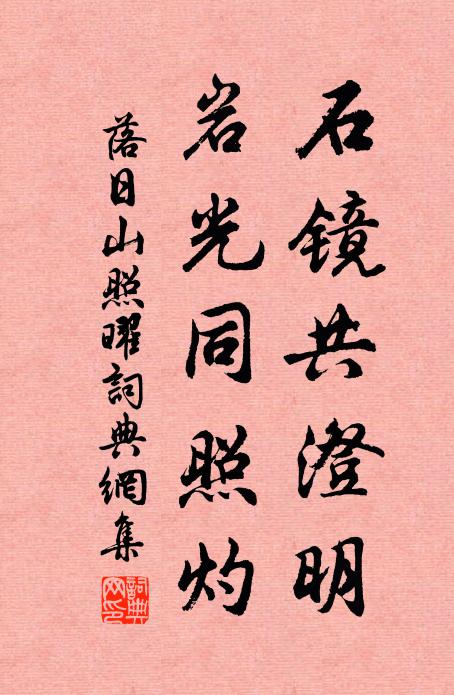 石镜共澄明
岩光同照灼
落日山照曜詞典網集
詞典
网印